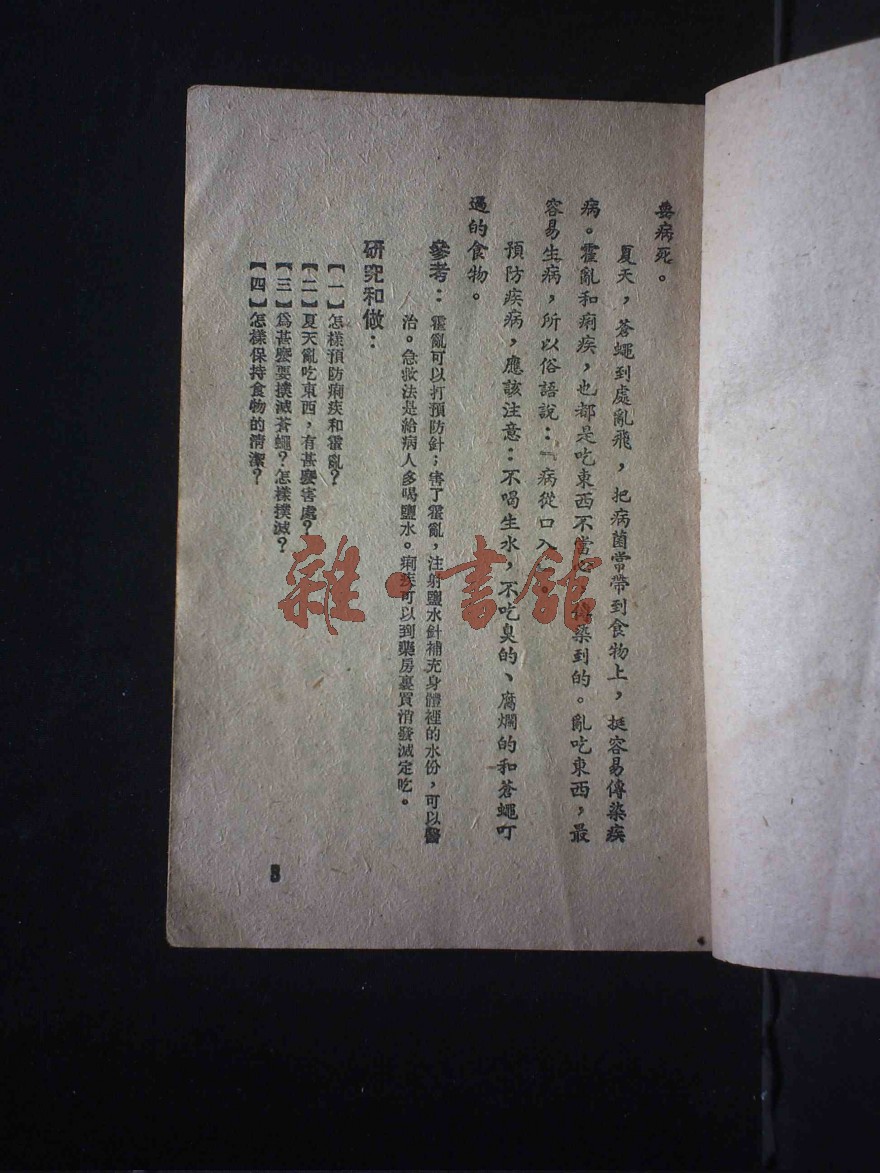 要病死。
夏天，蒼蠅到處亂飛，把病菌常帶到食物上，挺容易傳染疾
病。霍亂和痢疾，也都是吃東西不當心，傳染到的。亂吃東西，最
容易生病，所以俗語說：『病從口入
預防疾病，應該注意：不喝生水，不吃臭的、腐爛的和蒼蠅叮
過的食物。
參考：霍亂可以打預防針；害了霍亂，注射鹽水針補充身體裡的水份，可以醫
治。急救法是給病人多喝鹽水。痢疾可以到藥房裏買消發滅定吃。
研究和做：
【一】怎樣預防痢疾和霍亂？
【二】夏天亂吃東西，有甚麼害處？
【三】爲甚麼要撲滅蒼蠅？怎樣撲滅？
【四】怎樣保持食物的清潔？
雜·書館